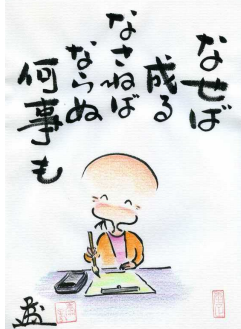 なせば
成る
なさねば
ならぬ
何事も